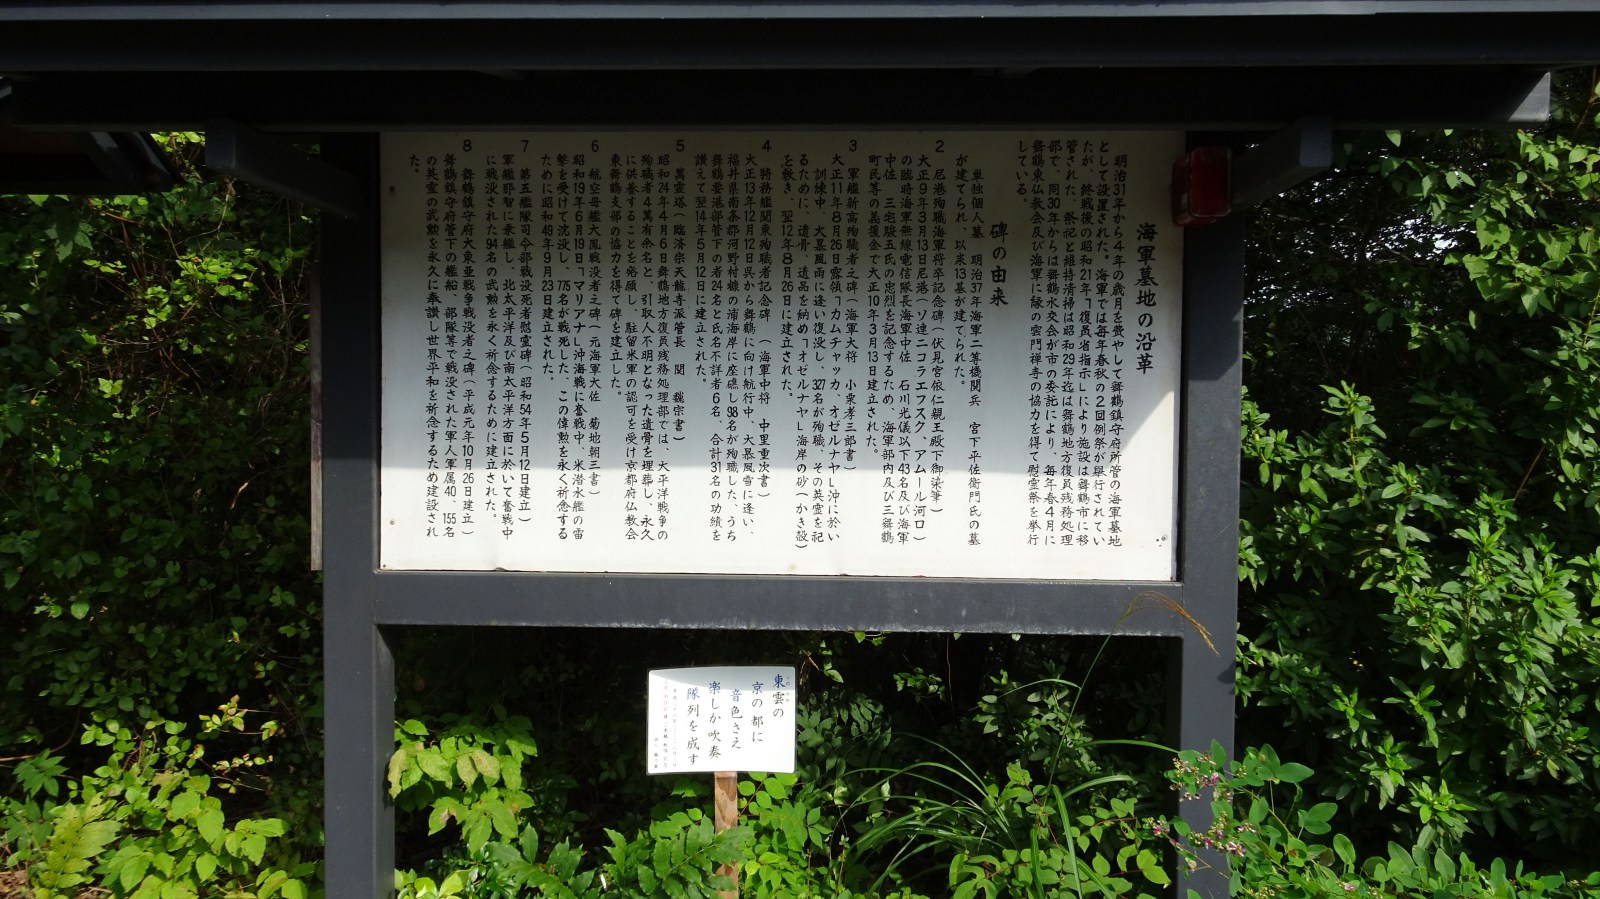 海軍墓地の沿革
明治31年から4年の歳月を費やして舞鶴鎮守府所管の海軍墓地
として設置された。海軍では毎年春秋の2回例祭が挙行されてい
たが、終戦後の昭和21年「復員省指示」により施設は舞鶴市に移
管された、祭祀と維持清掃は昭和29年迄は舞鶴地方復員残務処理
部で、同30年からは舞鶴水交会が市の委託により、毎年春4月に
舞鶴東仏教会及び海軍に縁の雲門禅寺の協力を得て慰霊祭を挙行
している。
碑の由来
1 単独個人墓 明治37年海軍二等機関兵 宮下平佐衛門氏の墓
が建てられ、以来13基が建てられた。
2 尼港殉職海軍将卒記念碑(伏見宮依仁親王殿下御染筆)
大正9年3月13日尼港(ソ連ニコラエフスク、アムール河口)
の臨時海軍無線電信隊長海軍中佐 石川光儀以下43名及び海軍
中佐 三宅駿五氏の忠烈を記念するため、海軍部内及び三舞鶴
町民等の義援金で大正10年3月13日建立された。
3 軍艦新高殉職者之碑(海軍大将 小栗孝三郎書)
大正11年8月26日露領「カムチャッカ、オゼルナヤ」沖に於い
訓練中、大暴風雨に逢い覆没し、327名が殉職、その英霊を祀
るために、遺骨、遺品を納め「オゼルナヤ」海岸の砂(かき殻)
を敷き、翌12年8月26日に建立された。
4 特務艦関東殉職者記念碑 (海軍中将 中里重次書)
大正13年12月12日呉から舞鶴に向け航行中、大暴風雪に逢い、
福井県南条郡河野村糠の浦海岸に座礁し98名が殉職した、うち
舞鶴要港部管下の者24名と氏名不詳者6名、合計31名の功績を
讃えて翌14年5月12日に建立された。
5 萬霊塔(臨済宗天龍寺派管長 関 巍宗書)
昭和24年4月6日舞鶴地方復員残務処理部では、大平洋戦争の
殉職者4萬有余名と、引取人不明となった遺骨を埋葬し、永久
に供養することを発願し、駐留米軍の認可を受け京都府仏教会
東舞鶴支部の協力を得て碑を建立した。
6 航空母艦大鳳戦没者之碑(元海軍大佐 菊地朝三書)
昭和19年6月19日「マリアナ」沖海戦に奮戦中、米潜水艦の雷
撃を受けて沈没し、775名が戦死した、この偉勲を永く祈念する
ために昭和49年9月23日建立された。
7 第五艦隊司令部戦没死者慰霊碑(昭和54年5月12日建立)
軍艦那智に乗艦し、北太平洋及び南太平洋方面に於いて奮戦中
に戦没された94名の武勲を永く祈念するために建立された。
8 舞鶴鎮守府管下大東亜戦争戦没者之碑(平成元年10月26日建立)
舞鶴鎮守府管下の艦船、部隊等で戦没された軍人軍属40、155名
の英霊の武勲を永久に奉讃し世界平和を祈念するため建設され
た。
東雲の
京の都に
音色さえ
楽しか吹奏
隊列を成す